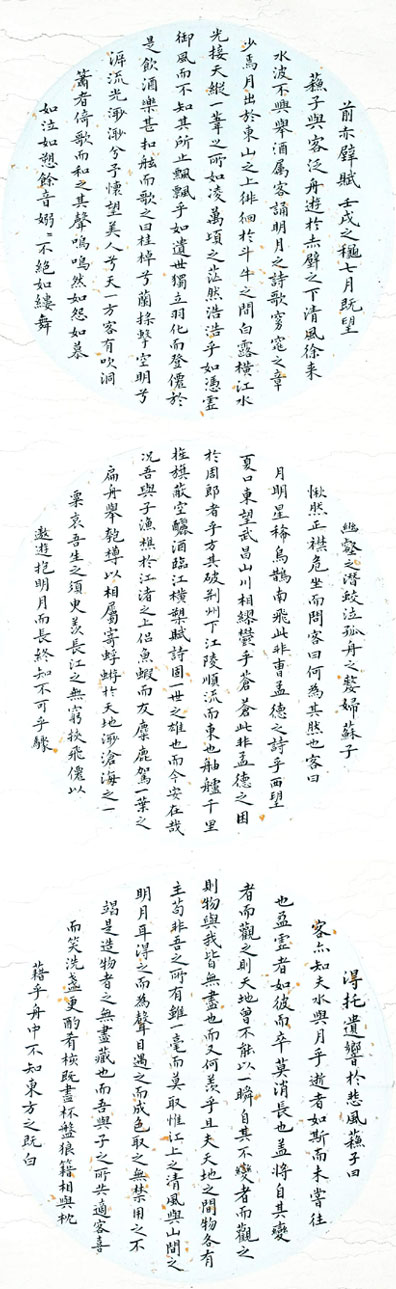 前赤壁賦 壬戌之穐七月既望
蘇子與客泛舟遊於赤壁之下清風徐来
水波不興舉酒属客誦明月之詩歌窈窕之章
少焉月出於東山之上徘徊於斗牛之間白露橫江水
光接天縱一葦之所如凌萬頃之茫然浩浩乎如憑虛
御風而不知其所止飄飄乎如遺世獨立羽化而登僊於
是飲酒樂甚扣舷而歌之曰桂棹兮蘭槳擊空明兮
泝流光渺渺兮予懷望美人兮天一方客有吹洞
簫者倚歌而和之其聲嗚嗚然如怨如慕
如泣如愬餘音嫋〻不絕如縷舞
幽壑之潛蛟泣孤舟之嫠婦蘇子
愀然正襟危坐而問客曰何為其然也客曰
月明星稀烏鵲南飛此非曹孟德之詩乎西望
夏口東望武昌山川相繆鬱乎蒼蒼此非孟德之困
於周郎者乎方其破荆州下江陵順流而東也舳艫千里
旌旗蔽空釃酒臨江橫槊賦詩固一世之雄也而今安在哉
況吾與子漁樵於江渚之上侶魚蝦而友麋鹿駕一葉之
扁舟舉匏樽以相屬寄蜉蝣於天地渺滄海之一
粟哀吾生之須臾羡長江之無窮挾飛僊以
遨遊抱明月而長終知不可乎驟
得托遺響於悲風蘇子曰
客亦知夫水與月乎逝者如斯而未嘗往
也盈虛者如彼而卒莫消長也盖將自其變
者而觀之則天地曾不能以一瞬自其不變者而觀之
則物與我皆無盡也而又何羨乎且夫天地之間物各有
主苟非吾之所有雖一毫而莫取惟江上之清風與山間之
明月耳得之而為聲目遇之而成色取之無禁用之不
竭是造物者之無盡藏也而吾與子之所共適客喜
而笑洗盞更酌肴核既盡杯盤狼籍相與枕
藉乎舟中不知東方之既白